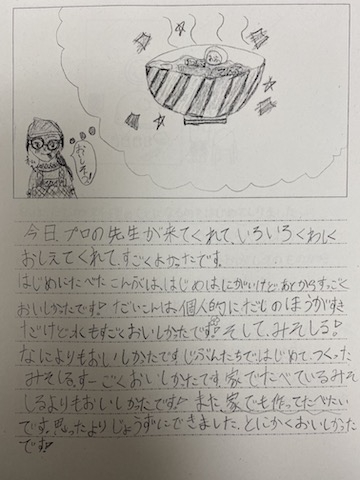 おいしそう!
今日、プロの先生が来てくれて、いろいろくわしく
おしえてくれて、すごくよかったです。
はじめにたべたこんぶは、はじめはにがいけどあとからすっごく
おいしかったです! だいこんは、個人的にだしのほうがすき
だけど、水もすごくおいしかったです! そして、みそしる!
なによりもおいしかったです。じぶんたちではじめてつくった
みそしる、すーごくおいしかったです。家でたべているみそ
しるよりもおいしかったです! また、家でも作ってたべたい
です。思ったよりじょうずにできました。とにかくおいしかった
です!